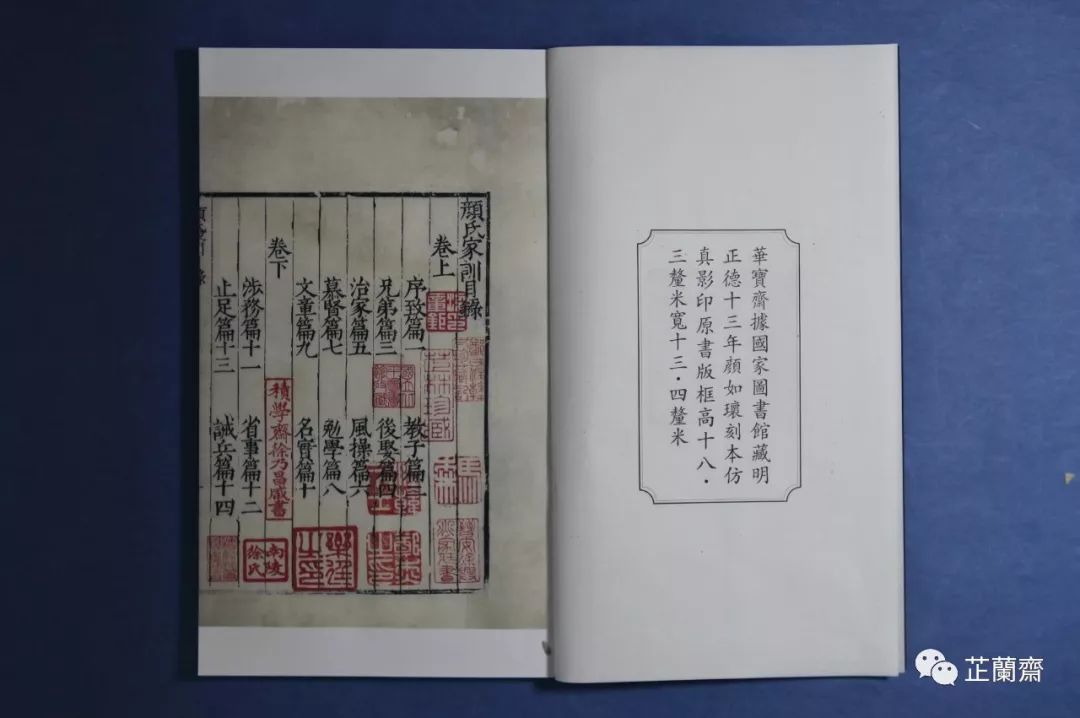 華寶齋據國家圖書館藏明
正德十三年顏如瓌刻本仿
真影印原書版框高十八·
三釐米寬十三·四釐米
顏氏家訓目錄
卷上
序致篇一 教子篇二
兄弟篇三 後娶篇四
治家篇五 風操篇六
慕賢篇七 勉學篇八
文章篇九 名實篇十
卷下
積學齋徐乃昌藏書
涉務篇十一 省事篇十二
止足篇十三 誡兵篇十四
南陵
徐氏
芷蘭齋